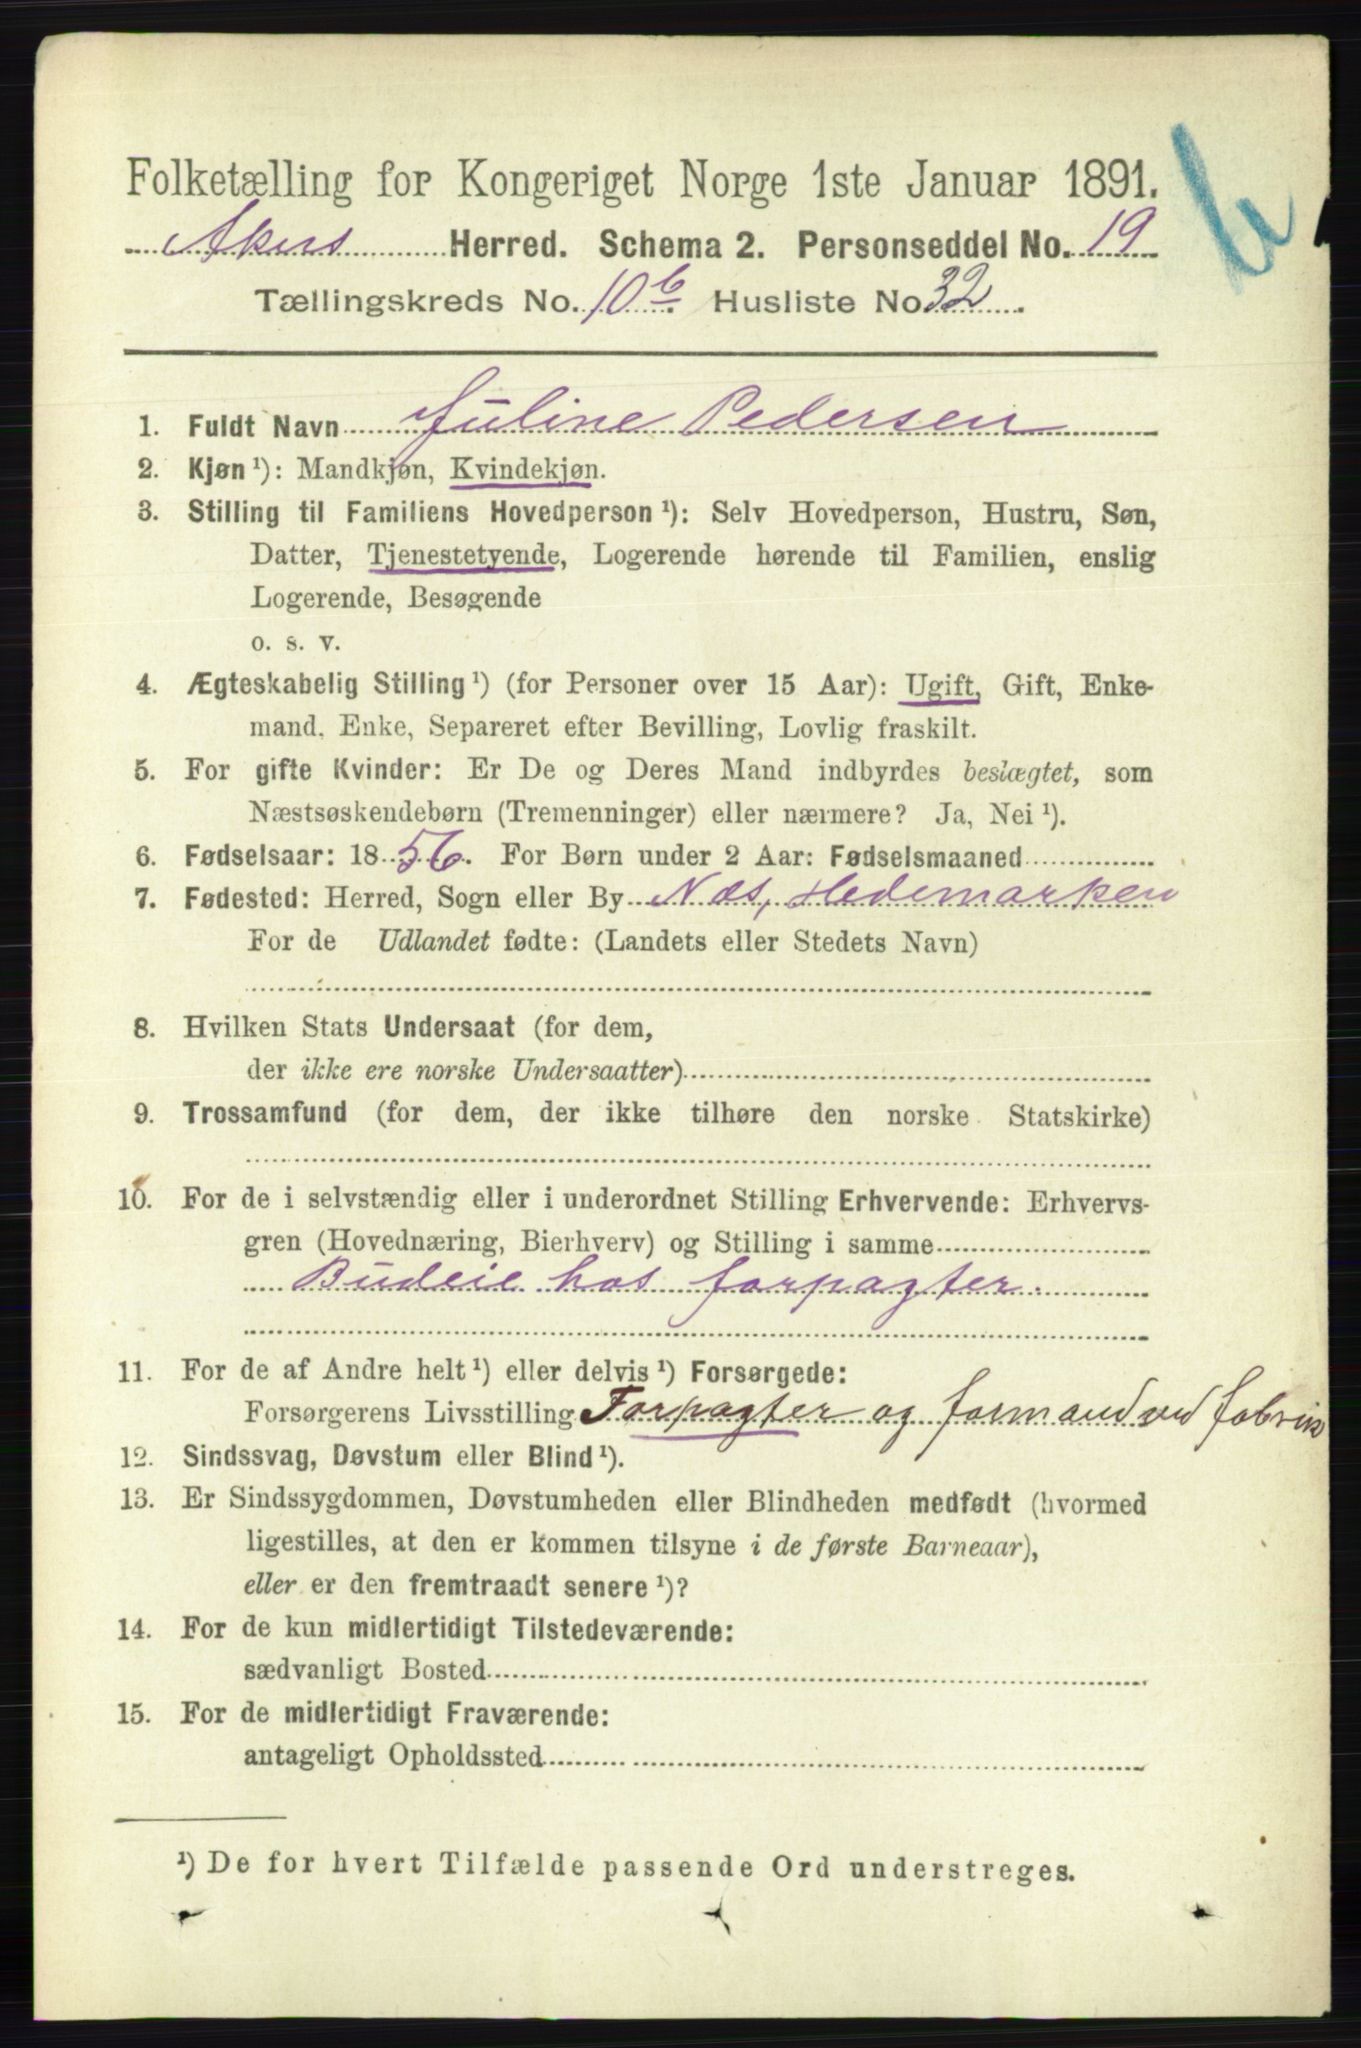 Folketælling for Kongeriget Norge 1ste Januar 1891.
Akers Herred. Schema 2. Personseddel No. 19
Tællingskreds No. 10 b. Husliste No. 32
1. Fuldt Navn Juline Pedersen
2. Kjøn ¹): Mandkjøn, Kvindekjøn.
3. Stilling til Familiens Hovedperson ¹): Selv Hovedperson, Hustru, Søn,
Datter, Tjenestetyende, Logerende hørende til Familien, enslig
Logerende, Besøgende
o. s. v.
4. Ægteskabelig Stilling ¹) (for Personer over 15 Aar): Ugift, Gift, Enke-
mand, Enke, Separeret efter Bevilling, Lovlig fraskilt.
5. For gifte Kvinder: Er De og Deres Mand indbyrdes beslægtet, som
Næstsøskendebørn (Tremenninger) eller nærmere? Ja, Nei ¹).
6. Fødselsaar: 1856. For Børn under 2 Aar: Fødselsmaaned
7. Fødested: Herred, Sogn eller By Næs, Hedemarken
For de Udlandet fødte: (Landets eller Stedets Navn)
8. Hvilken Stats Undersaat (for dem,
der ikke ere norske Undersaatter)
9. Trossamfund (for dem, der ikke tilhøre den norske Statskirke)
10. For de i selvstændig eller i underordnet Stilling Erhvervende: Erhvervs-
gren (Hovednæring, Bierhverv) og Stilling i samme
Budeie hos forpagter.
11. For de af Andre helt ¹) eller delvis ¹) Forsørgede:
Forsørgerens Livsstilling Forpagter og formand ved fabrik
12. Sindssvag, Døvstum eller Blind ¹).
13. Er Sindssygdommen, Døvstumheden eller Blindheden medfødt (hvormed
ligestilles, at den er kommen tilsyne i de første Barneaar),
eller er den fremtraadt senere ¹)?
14. For de kun midlertidigt Tilstedeværende:
sædvanligt Bosted
15. For de midlertidigt Fraværende:
antageligt Opholdssted
¹) De for hvert Tilfælde passende Ord understreges.